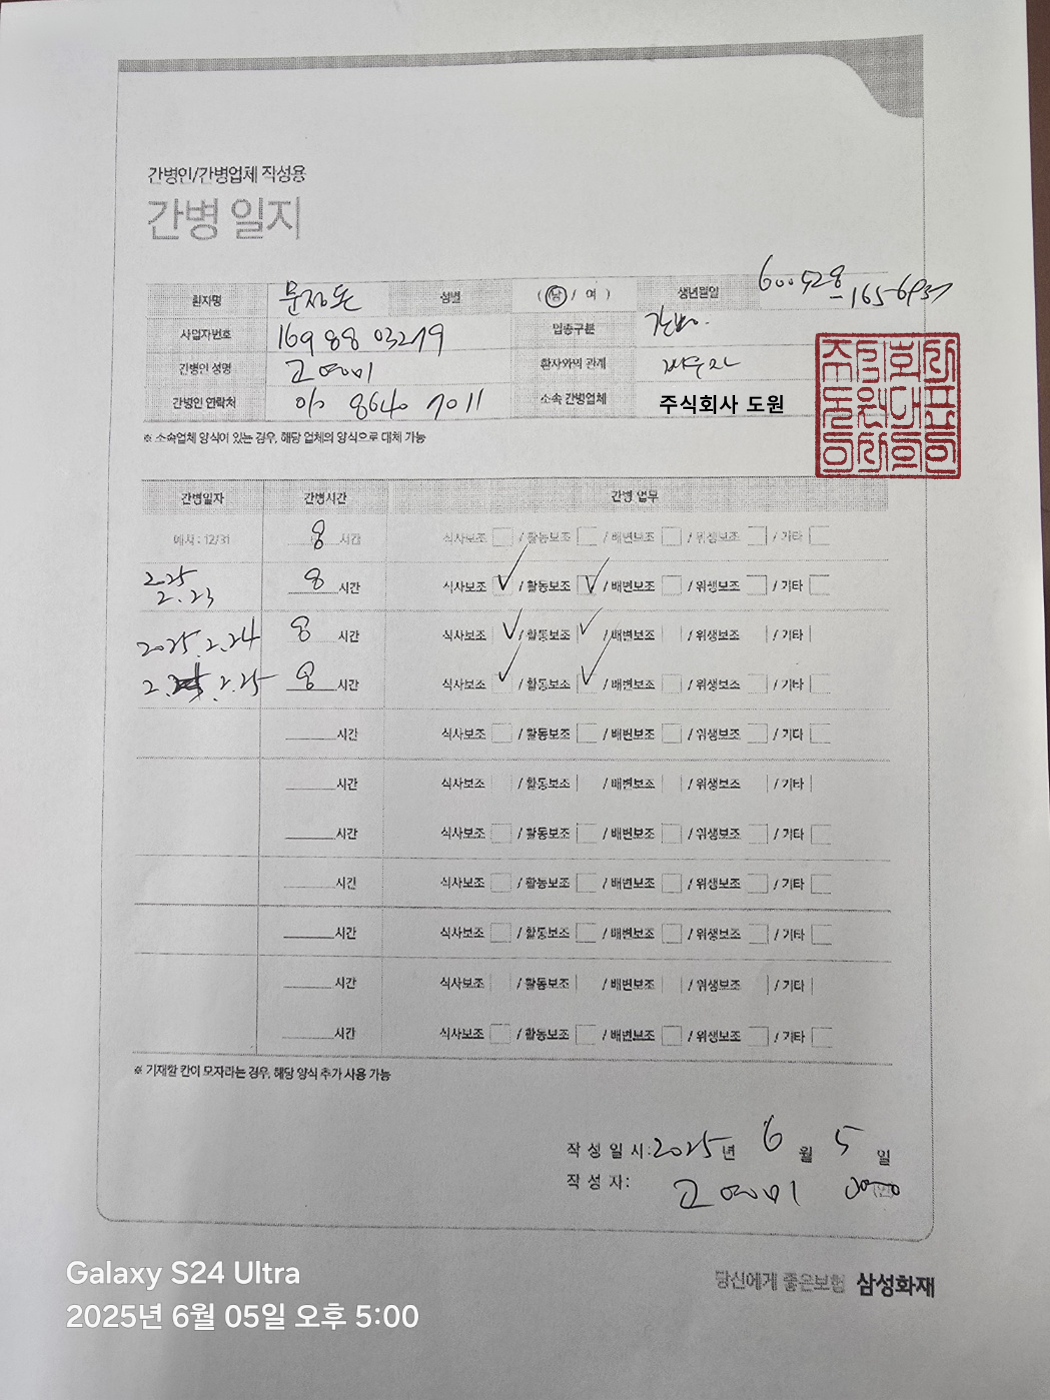 간병인/간병업체 작성용
간병 일지
환자명 문정돈 성별 ( 남 / 여 ) 생년월일 600928
사업자번호 169 88 03279 업종구분 간병.
간병인 성명 고영미 환자와의 관계
간병인 연락처 010 8640 7011 소속 간병업체 주식회사 도원
※ 소속업체 양식이 있는 경우, 해당 업체의 양식으로 대체 가능
간병일자 간병시간 간병 업무
예시 : 12/31 8 시간 식사보조 / 활동보조 / 배변보조 / 위생보조 / 기타
2025 2.23 8 시간 식사보조 ✓ / 활동보조 ✓ / 배변보조 / 위생보조 / 기타
2025.2.24 8 시간 식사보조 ✓ / 활동보조 ✓ / 배변보조 / 위생보조 / 기타
2.25 8 시간 식사보조 ✓ / 활동보조 ✓ / 배변보조 / 위생보조 / 기타
시간 식사보조 / 활동보조 / 배변보조 / 위생보조 / 기타
시간 식사보조 / 활동보조 / 배변보조 / 위생보조 / 기타
시간 식사보조 / 활동보조 / 배변보조 / 위생보조 / 기타
시간 식사보조 / 활동보조 / 배변보조 / 위생보조 / 기타
시간 식사보조 / 활동보조 / 배변보조 / 위생보조 / 기타
시간 식사보조 / 활동보조 / 배변보조 / 위생보조 / 기타
시간 식사보조 / 활동보조 / 배변보조 / 위생보조 / 기타
※ 기재할 칸이 모자라는 경우, 해당 양식 추가 사용 가능
작 성 일 시 : 2025 년 6 월 5 일
작 성 자 : 고영미 (인)
당신에게 좋은보험 삼성화재
Galaxy S24 Ultra
2025년 6월 05일 오후 5:00